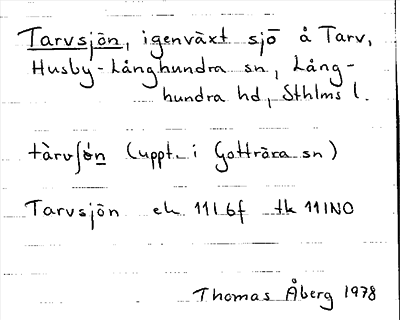 Tarvsjön, igenväxt sjö å Tarv,
Husby-Långhundra sn, Lång-
hundra hd, Sthlms l.
tàrvʃön (uppt. i Gottröra sn)
Tarvsjön ek 11I6f tk 11INO
Thomas Åberg 1978